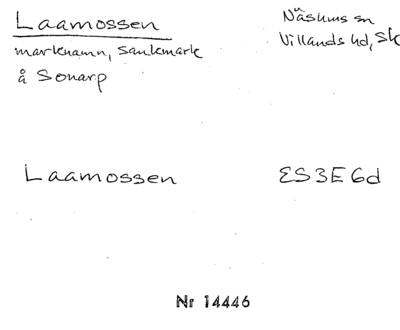 Laamossen
Näsums sn
marknamn, sankmark
Villands hd, Sk
å Sonarp
Laamossen
ES3E6d
Nr 14446